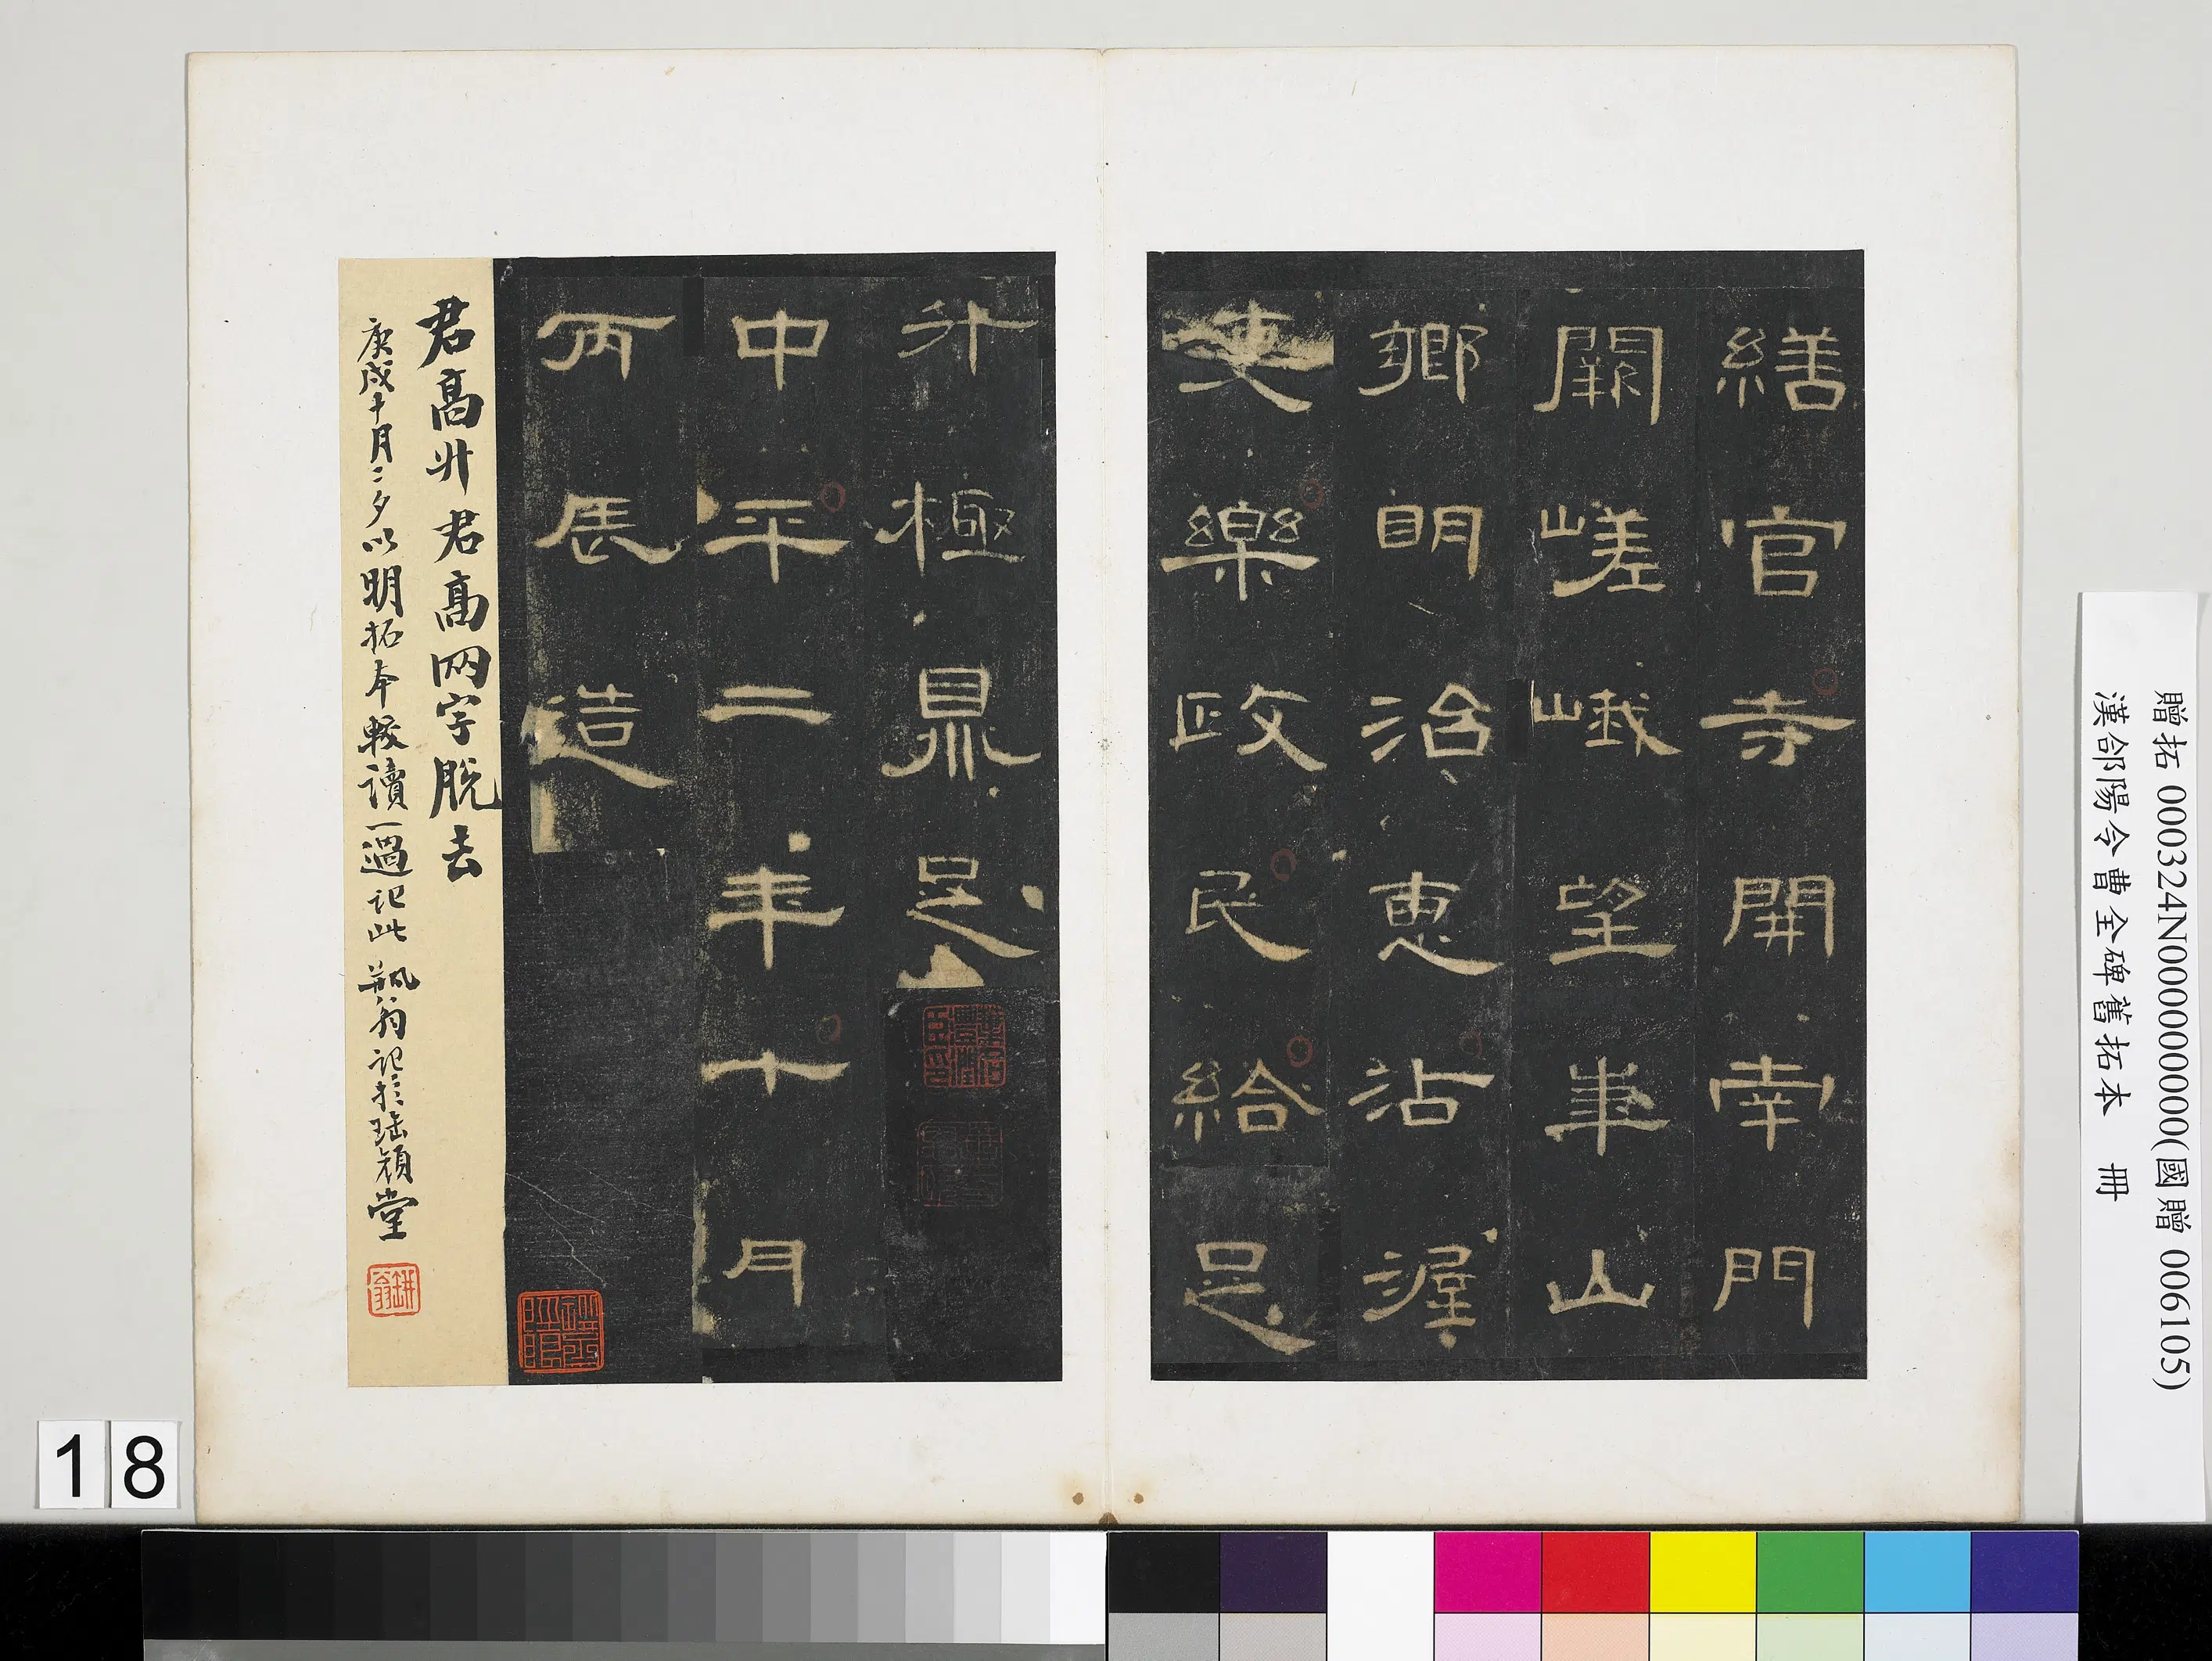 繕官寺開南門
闕嵯峨望華山
鄉明治惠沾渥
吏樂政民給足
升極鼎足
中平二年十月
丙辰造
君高升君高兩字脫去
庚戌十月二夕以明拓本較讀一過記此 瓶翁記於瑤堂
缾翁
贈拓 000324N000000000(國贈 006105)
漢郃陽令曹全碑舊拓本 冊
18